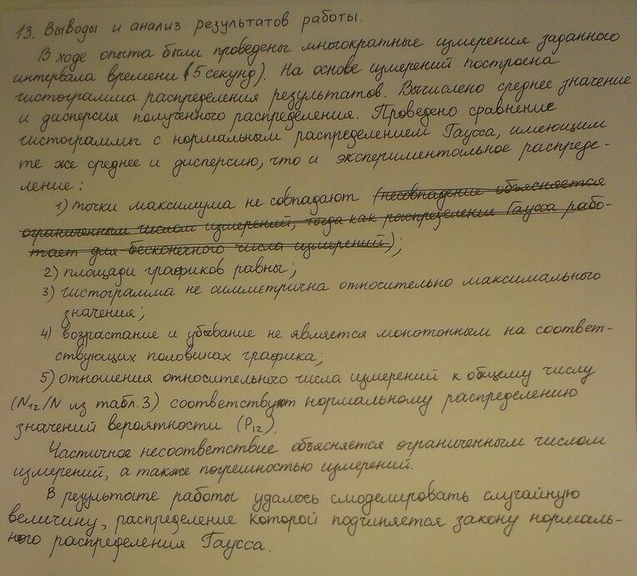 13. Выводы и анализ результатов работы.
В ходе опыта были проведены многократные измерения заданного
интервала времени (5 секунд). На основе измерений построена
гистограмма распределения результатов. Вычислено среднее значение
и дисперсия полученного распределения. Проведено сравнение
гистограммы с нормальным распределением Гаусса, имеющим
те же среднее и дисперсию, что и экспериментальное распреде-
ление:
1) точки максимума не совпадают (несовпадение объясняется
ограниченным числом измерений, тогда как распределение Гаусса рабо-
тает для бесконечного числа измерений);
2) площади графиков равны;
3) гистограмма не симметрична относительно максимального
значения;
4) возрастание и убывание не является монотонным на соответ-
ствующих половинах графика;
5) отношения относительного числа измерений к общему числу
(N12/N из табл.3) соответствуют нормальному распределению
значений вероятности (P12).
Частичное несоответствие объясняется ограниченным числом
измерений, а также погрешностью измерений.
В результате работы удалось смоделировать случайную
величину, распределение которой подчиняется закону нормаль-
ного распределения Гаусса.